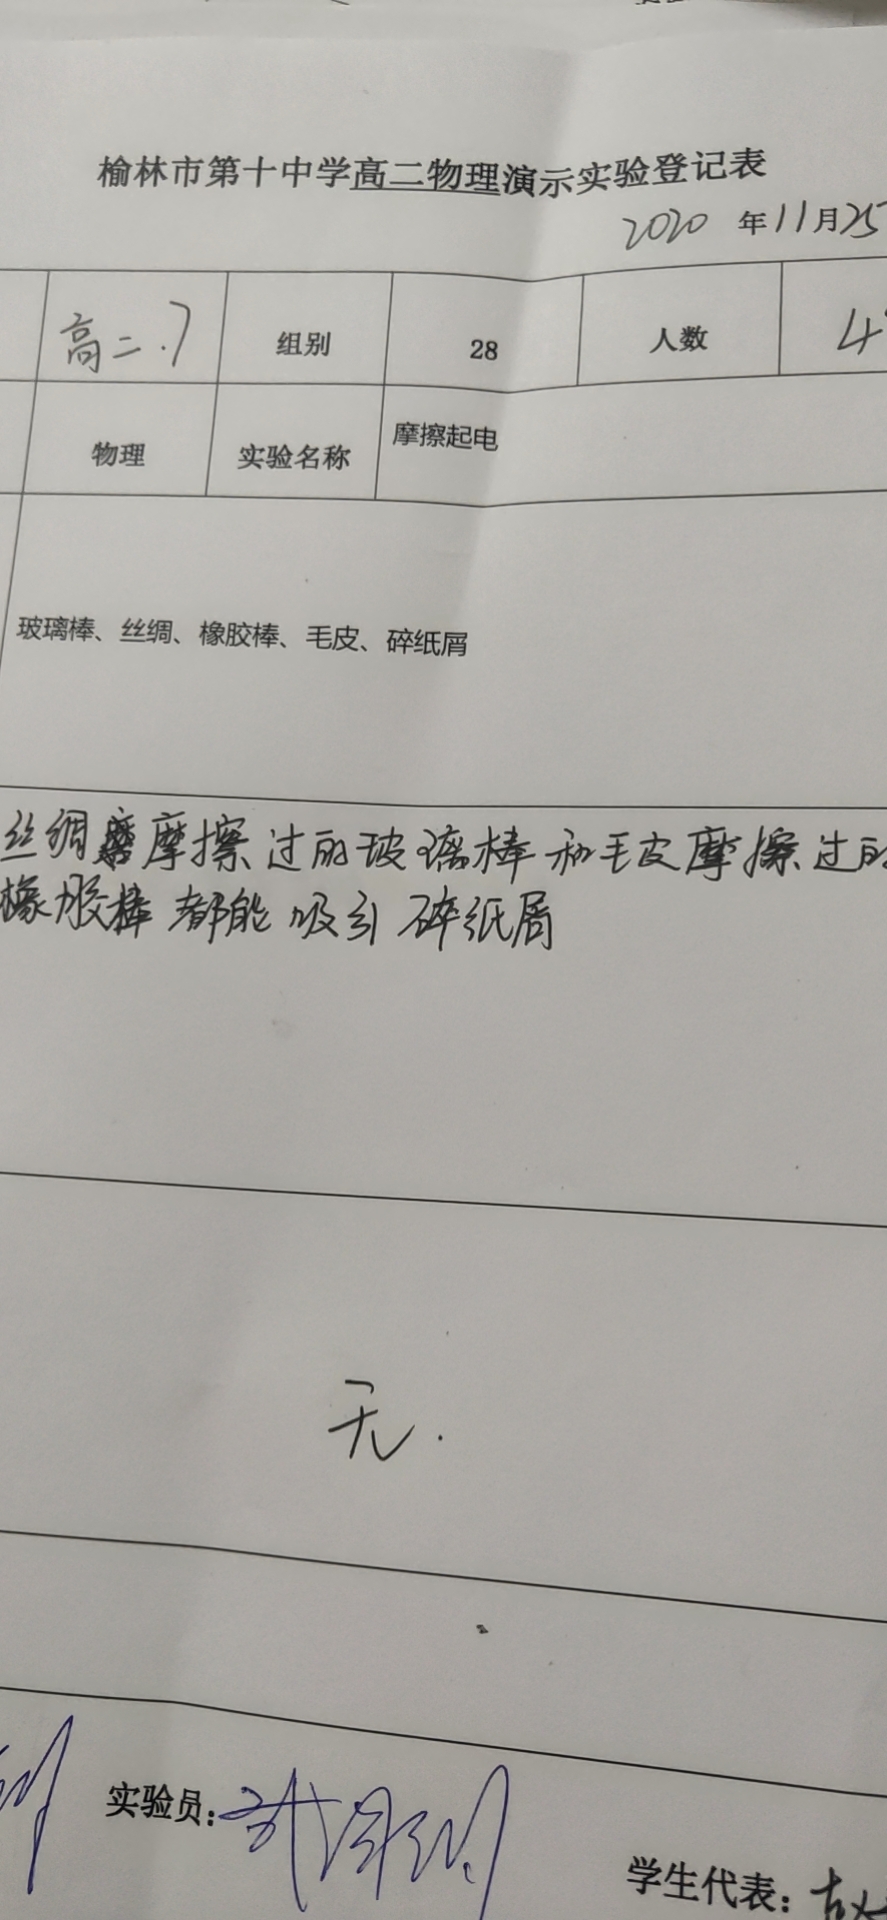 榆林市第十中学高二物理演示实验登记表
2020 年11月25
高二.7 组别 28 人数 4
物理 实验名称 摩擦起电
玻璃棒、丝绸、橡胶棒、毛皮、碎纸屑
丝绸摩擦过的玻璃棒和毛皮摩擦过的
橡胶棒都能吸引碎纸屑
无.
实验员:
学生代表: